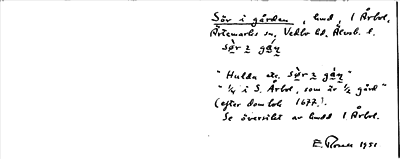 Sör i gården, hmd, 1 Årbol.
Ärtemarks sn, Vedbo hd, Älvsb. l.
sø̀r z gáṇ
"Hulda etc. sø̀r z gáṇ"
"1/4 i S. Årbol, som är 1/2 gård"
(efter dombok 1677.).
Se översikt av hmdd 1 Årbol.
E. 1951